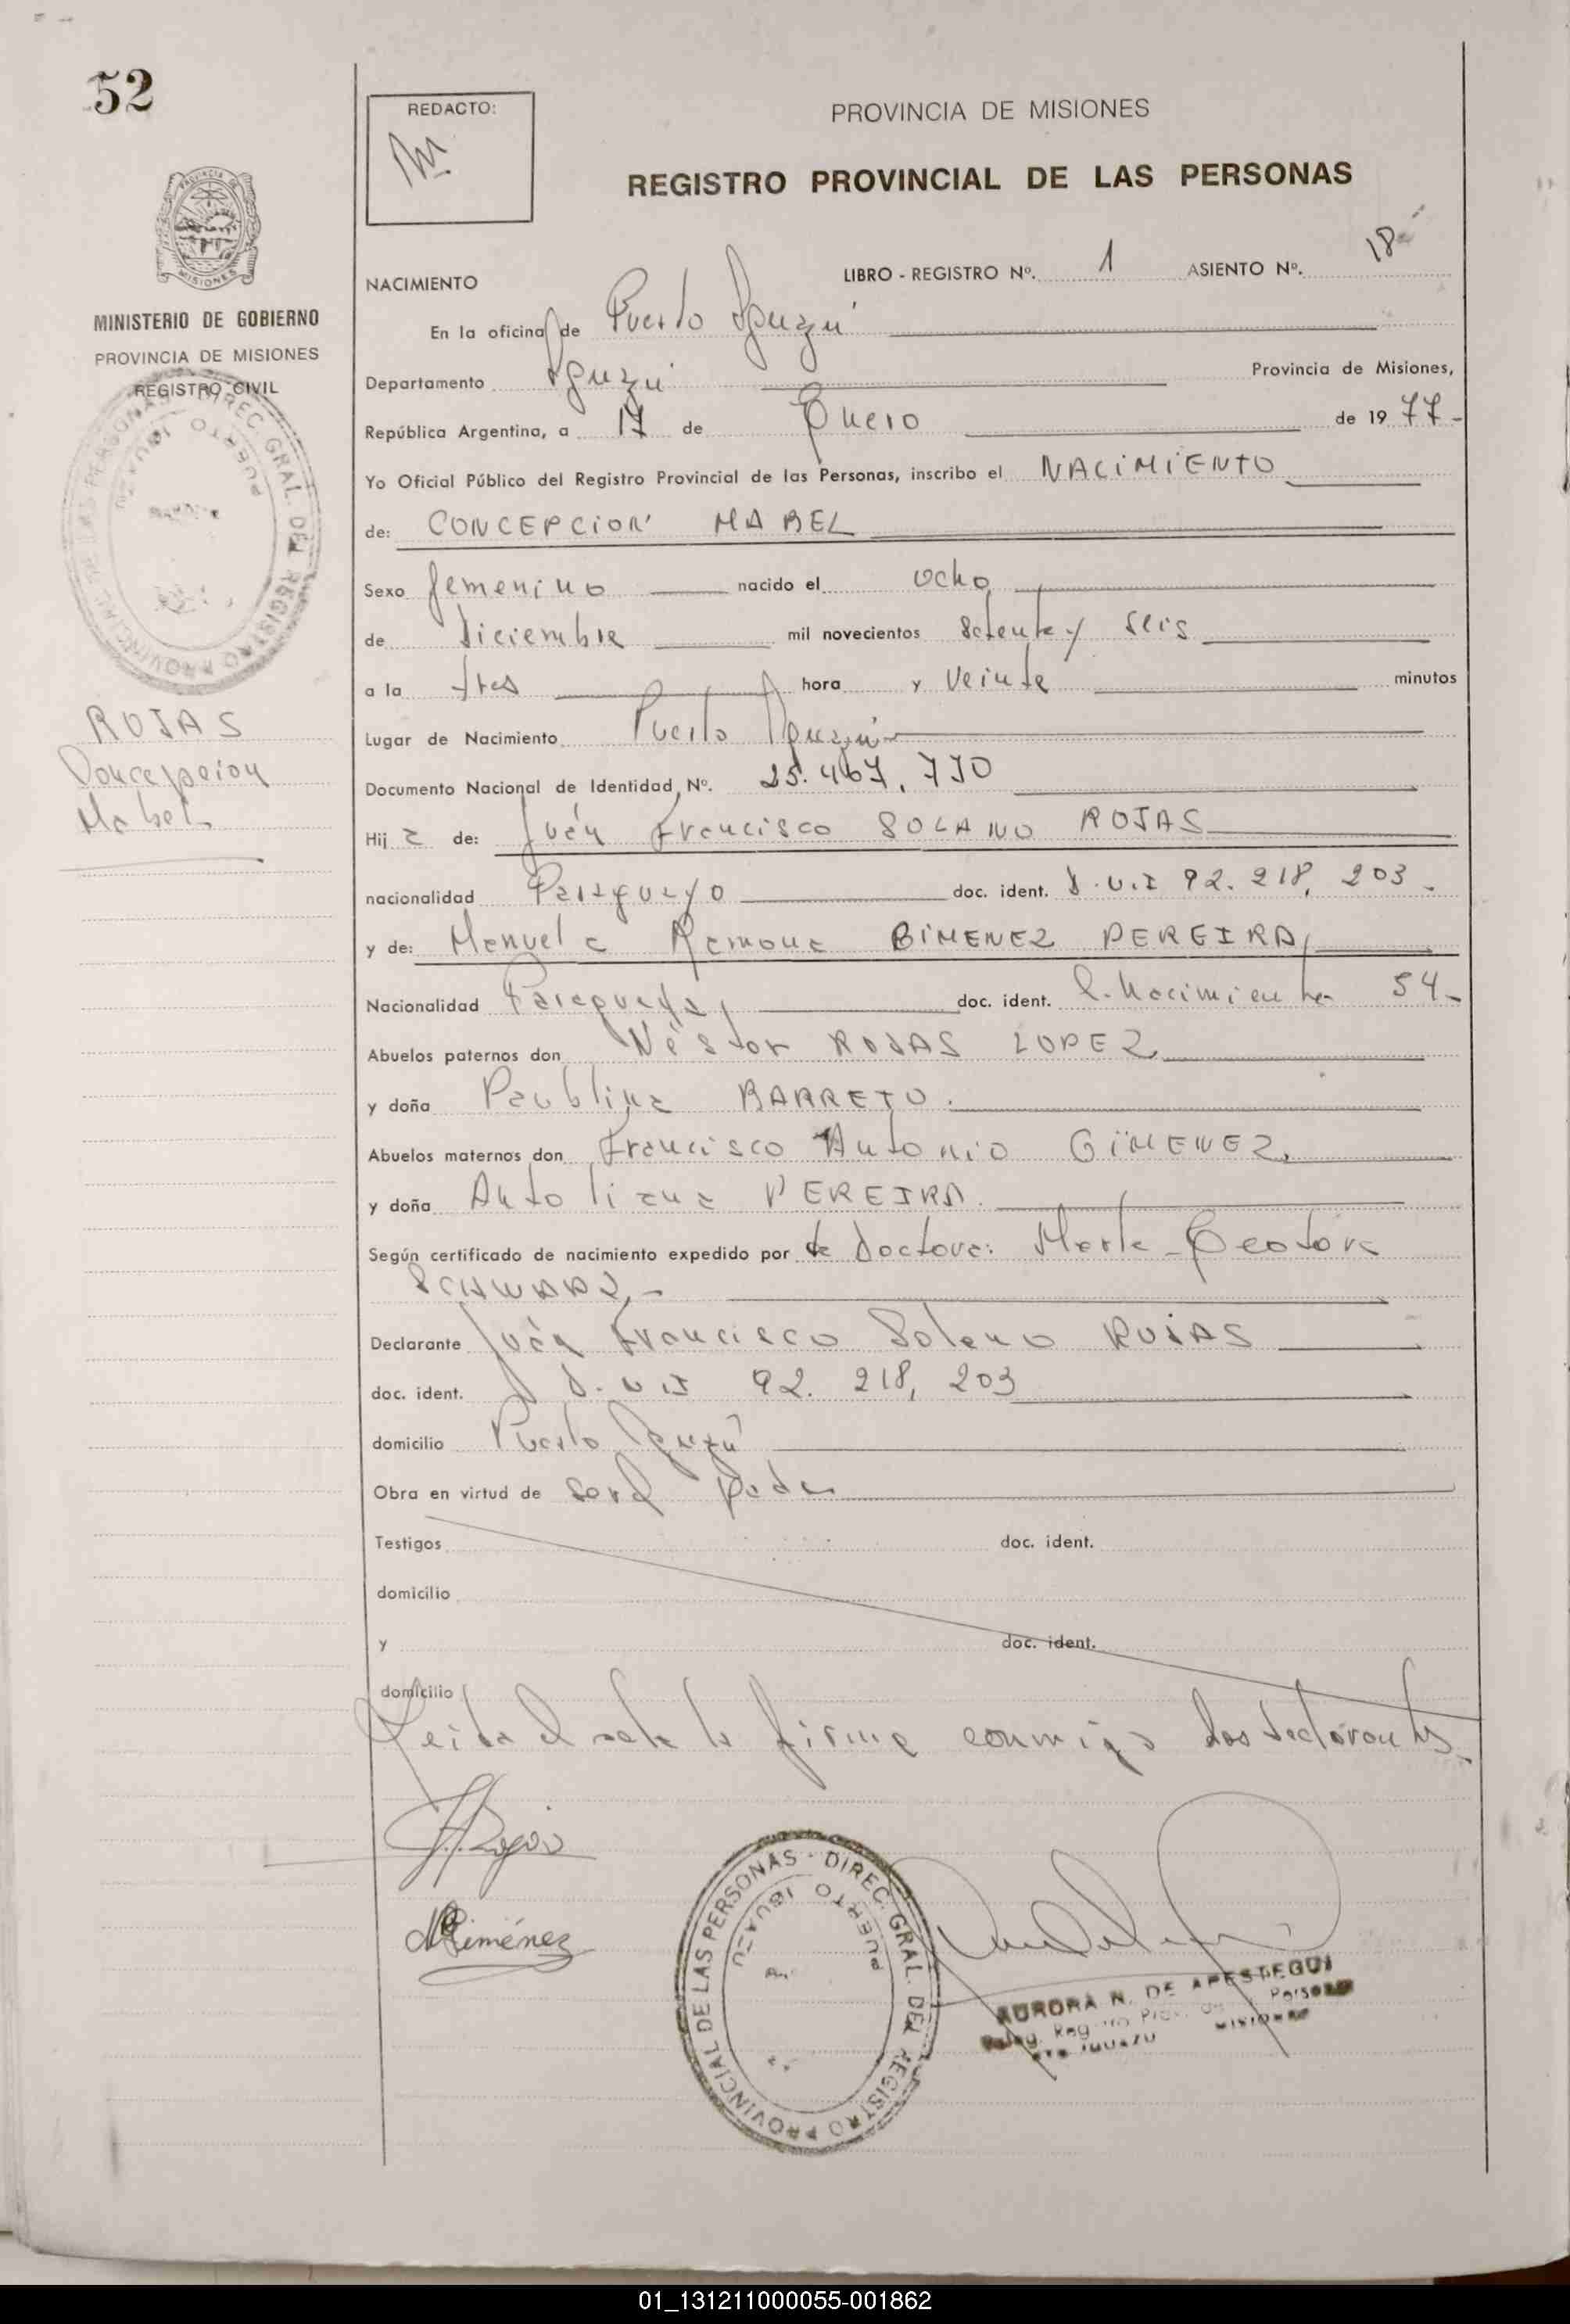 52
REDACTO:
PROVINCIA DE MISIONES
REGISTRO PROVINCIAL DE LAS PERSONAS
PROVINCIA DE MISIONES
MINISTERIO DE GOBIERNO
PROVINCIA DE MISIONES
REGISTRO CIVIL
DIREC. GRAL. DEL REGISTRO PROVINCIAL DE LAS PERSONAS
PUERTO IGUAZU
ROJAS
Concepcion
Mabel
NACIMIENTO LIBRO - REGISTRO Nº. 1 ASIENTO Nº. 18
En la oficina de Puerto Iguazú
Departamento Iguazú Provincia de Misiones,
República Argentina, a 17 de Enero de 1977-
Yo Oficial Público del Registro Provincial de las Personas, inscribo el NACIMIENTO
de: CONCEPCION MABEL
Sexo femenino nacido el ocho
de Diciembre mil novecientos setenta y seis
a la tres hora y veinte minutos
Lugar de Nacimiento Puerto Iguazú
Documento Nacional de Identidad, Nº. 25.467.770
Hija de: Juán Francisco SOLANO ROJAS
nacionalidad Paraguayo doc. ident. D.N.I 92.218,203.
y de: Manuela Ramona GIMENEZ PEREIRA
Nacionalidad Paraguaya, doc. ident. P. Nacimiento 54-
Abuelos paternos don Néstor ROJAS LOPEZ
y doña Paublina BARRETO.
Abuelos maternos don Francisco Antonio GIMENEZ,
y doña Antoliana PEREIRA
Según certificado de nacimiento expedido por la Doctora: Marta Teodora
SCHWARZ,-
Declarante Juán Francisco Solano ROJAS
doc. ident. D.N.I 92.218,203
domicilio Puerto Iguazú
Obra en virtud de ser el padre
Testigos doc. ident.
domicilio
y doc. ident.
domicilio
Leida el acta la firma conmigo los declarantes.
Rojas
Giménez
DIREC. GRAL. DEL REGISTRO PROVINCIAL DE LAS PERSONAS
PUERTO IGUAZU
AURORA N. DE APESTEGUI
MISIONES
IGUAZU
01_131211000055-001862